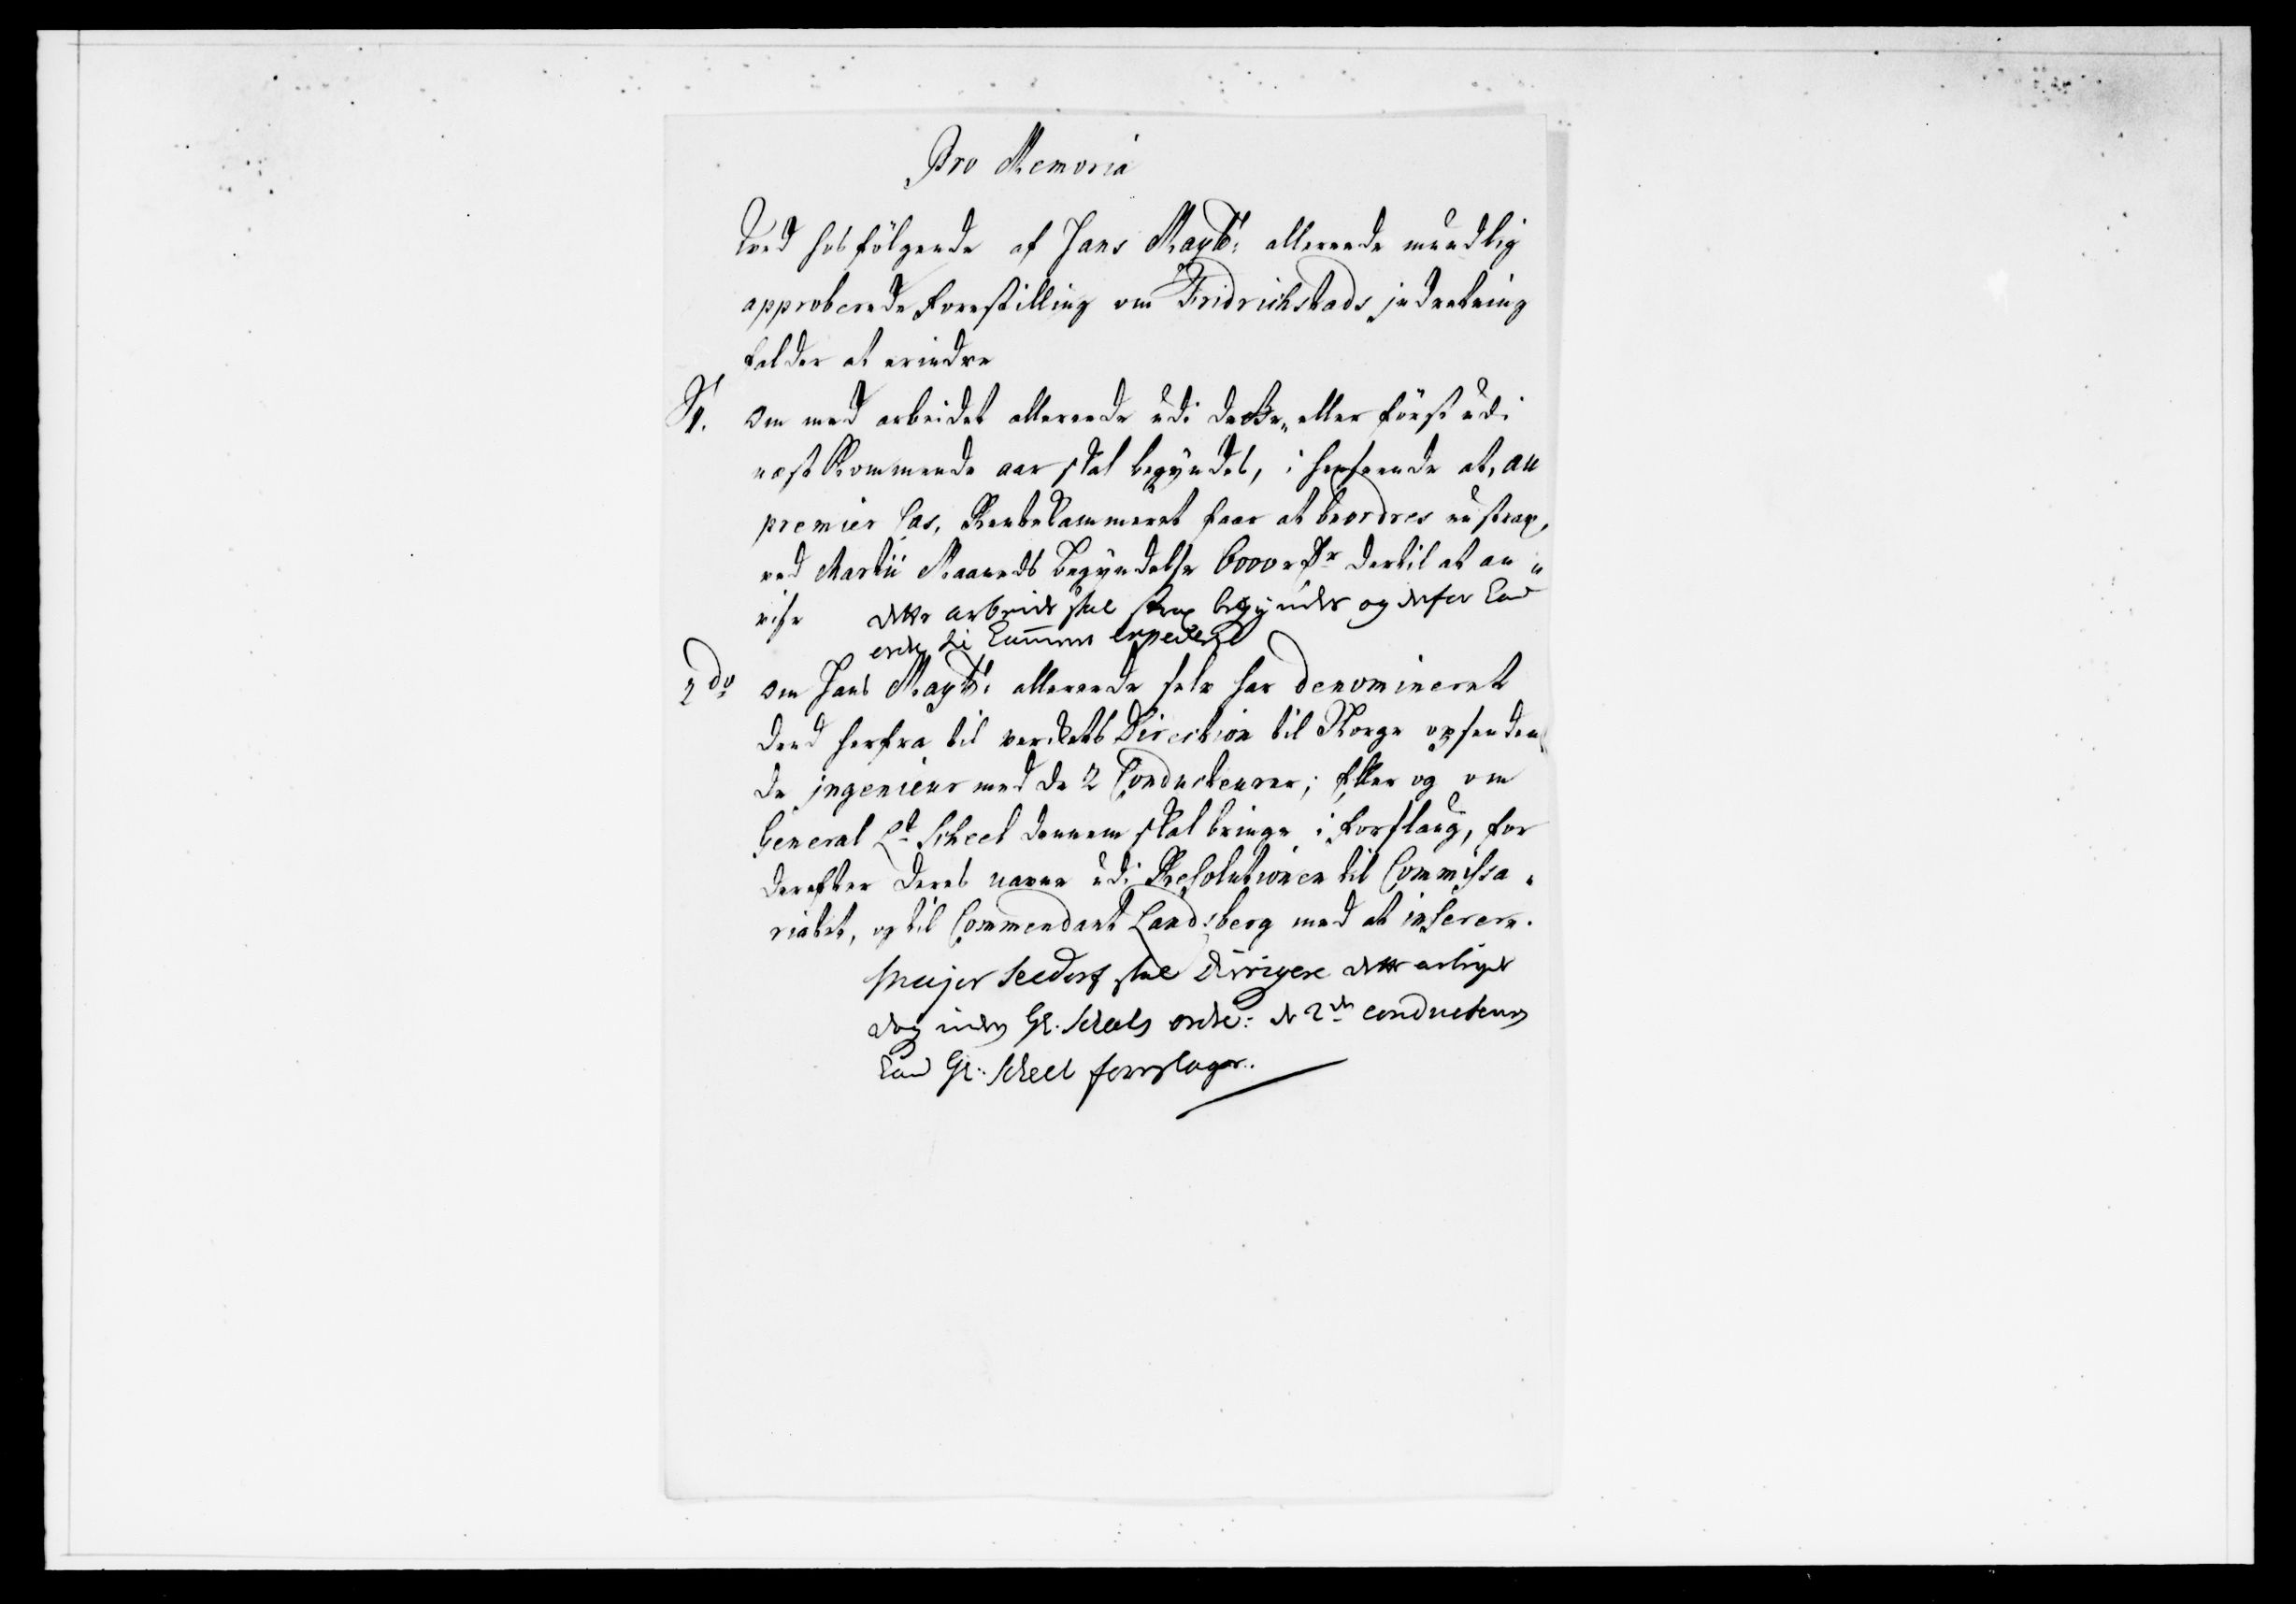 Pro Memoria
Ved hosfölgende af Hans Mayt: allereede mundlig
approberede Forestilling om Fridrichstads jndretning
falder at erindre
1. Om med arbeidet allereede udi dette eller först udi
næstkommende aar skal begyndes, i henseende at, au
premier Cas, Rentekammeret faar at beordres nu strax,
ved Martii Maaneds Begyndelse 6000 rdr dertil at an-
vise dette arbeide skal strax begyndes og derfor kand
ordre til Cammeret expederes
2do Om Hans Mayt: allereede selv har denomineret
dend herfra til verckets Direction til Norge opsenden
de jngenieur med de 2 Conducteurer; Eller og om
General Lt Scheel dennem skal bringe i forslaug, for
derefter deres navne udi Resolutionen til Commissa-
riatet, og til Commendant Landsberg med at inserere.
Major Seedorf skal dirrigere dette arbeyde
dog under Gl. Scheels ordre: de 2de conducteurs
kand Gl: Scheel forreslage.